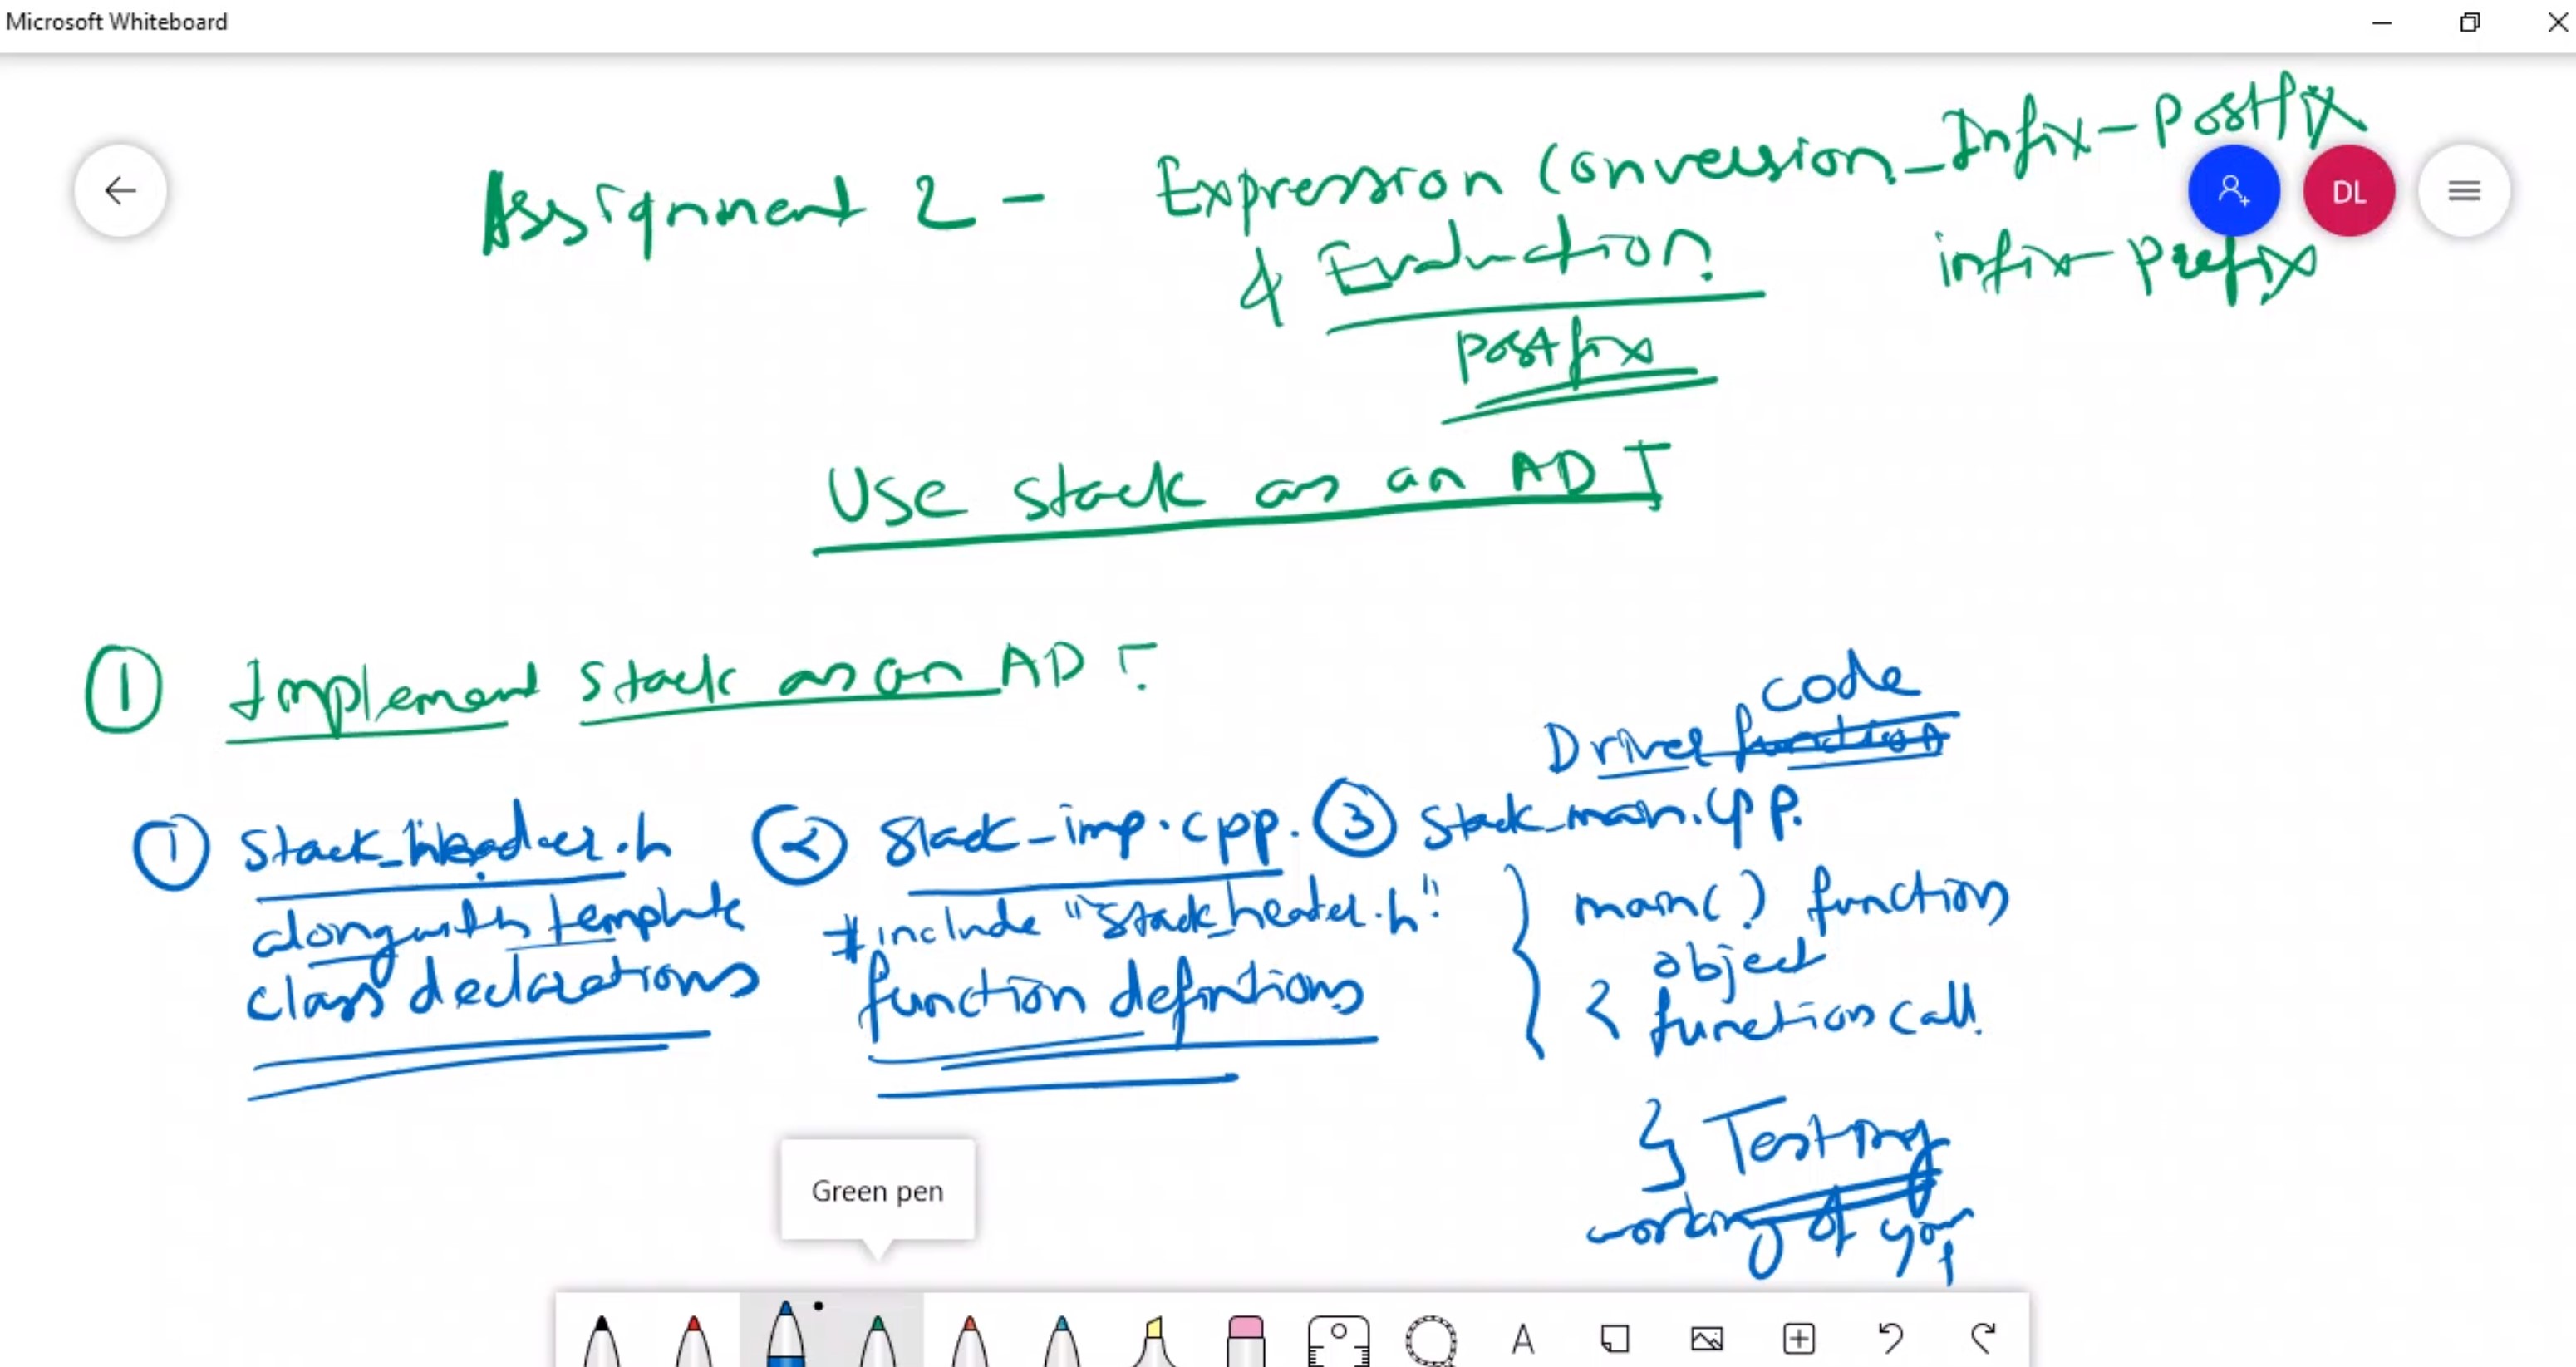 Microsoft Whiteboard
Assignment 2 - Expression Conversion - Infix - Postfix
& Evaluation infix - prefix
postfix
DL
Use stack as an ADT
① Implement stack as an ADT.
Driver function code
① stack_header.h
alongwith template
class declarations
② stack_imp.cpp.
#include "stack_header.h".
function definitions
③ stack_main.cpp.
main() function
object
& function call.
} Testing
working of your
Green pen
A